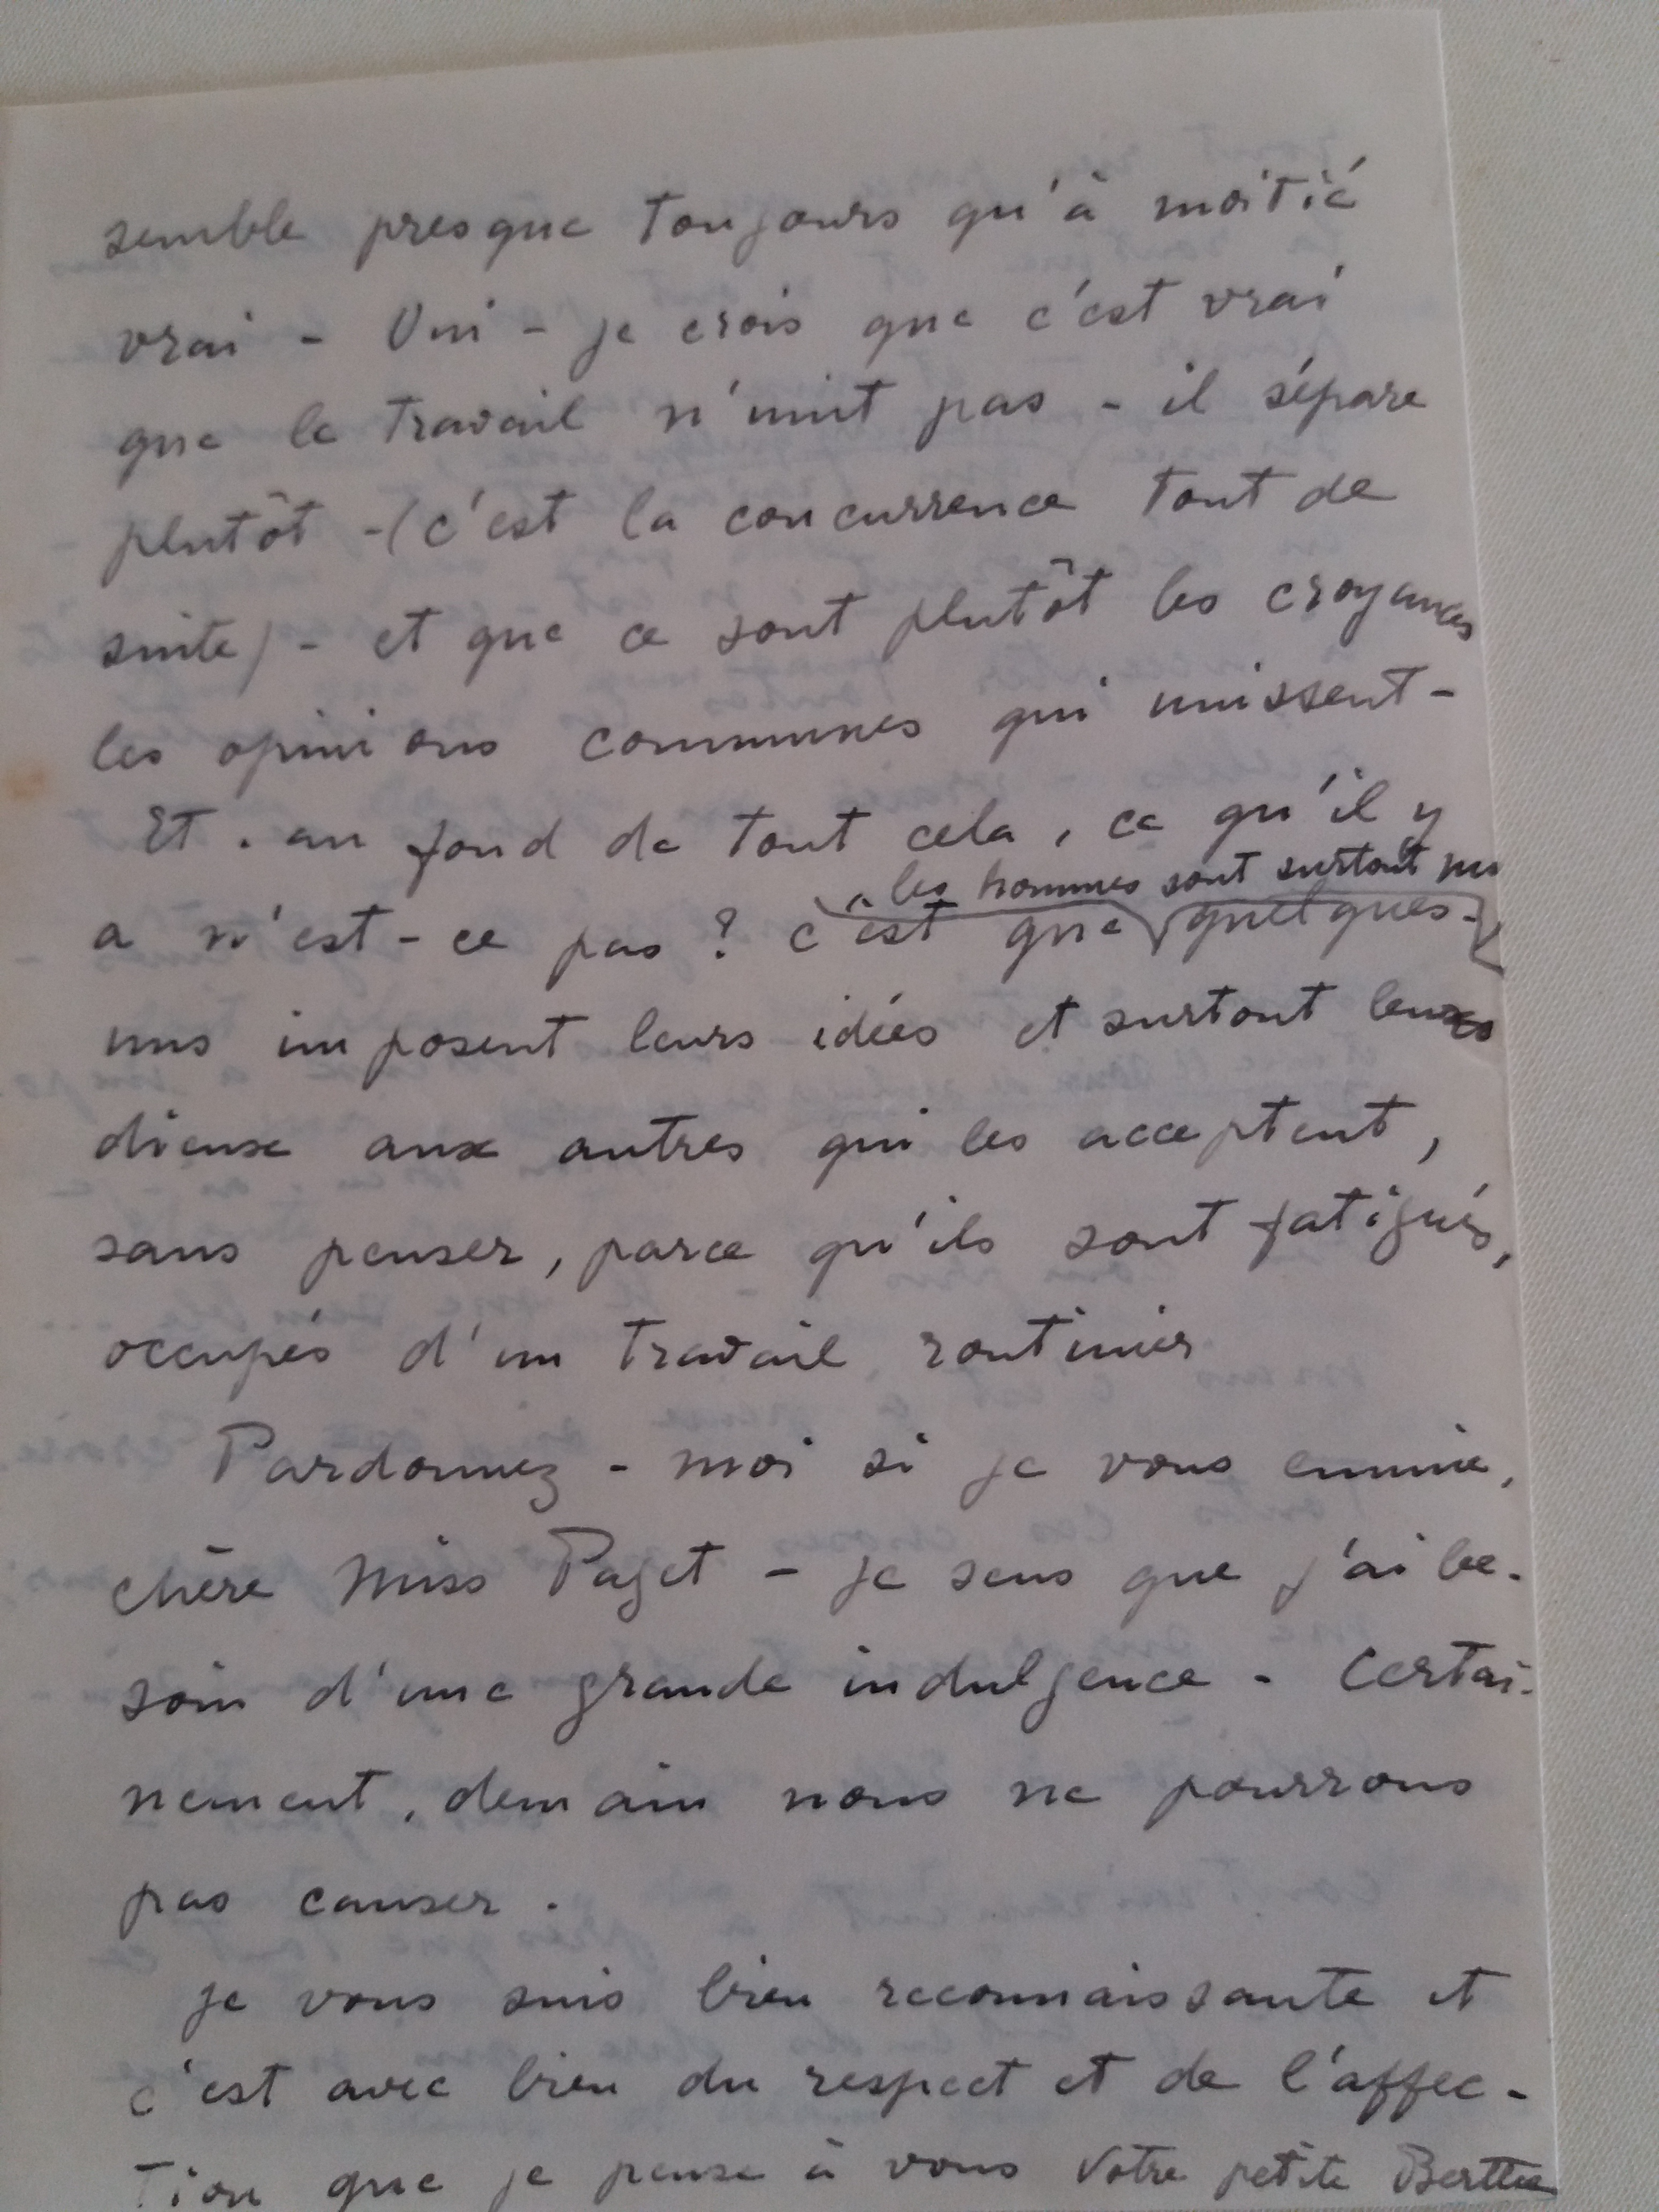 semble presque toujours qu'à moitié
vrai - Oui - je crois que c'est vrai
que le travail n'unit pas - il sépare
plutôt - (c'est la concurrence tout de
suite) - et que ce sont plutôt les croyances
les opinions communes qui unissent -
Et, au fond de tout cela, ce qu'il y
les hommes sont surtout
a n'est-ce pas ? c'est que quelques-
uns imposent leurs idées et surtout leurs
dieux aux autres qui les acceptent,
sans penser, parce qu'ils sont fatigués,
occupés d'un travail routinier
Pardonnez - moi si je vous ennuie,
chère Miss Paget - je sens que j'ai be-
soin d'une grande indulgence - Certai-
nement, demain nous ne pourrons
pas causer.
je vous suis bien reconnaissante et
c'est avec bien du respect et de l'affec-
tion que je pense à vous Votre petite Berthe